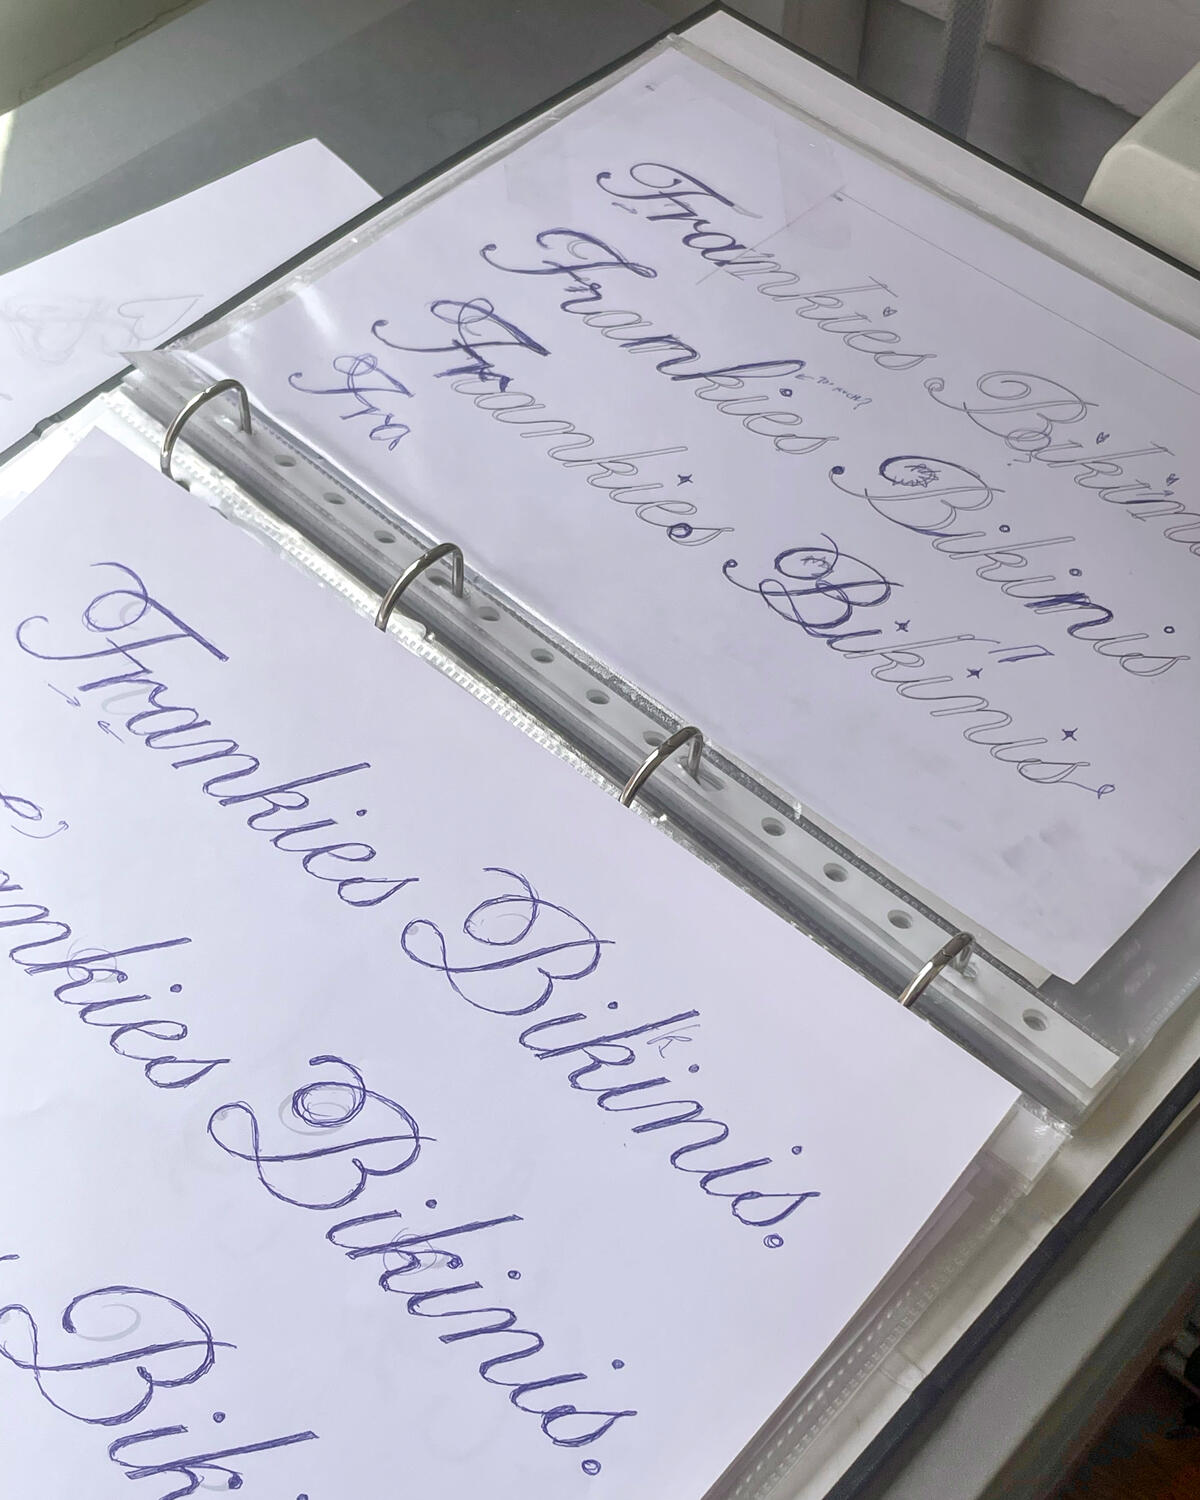 Frankies Bikinis
Frankies Bikinis
Frankies Bikinis
Fra
Frankies Bikinis.
ankies Bikinis.
Bik